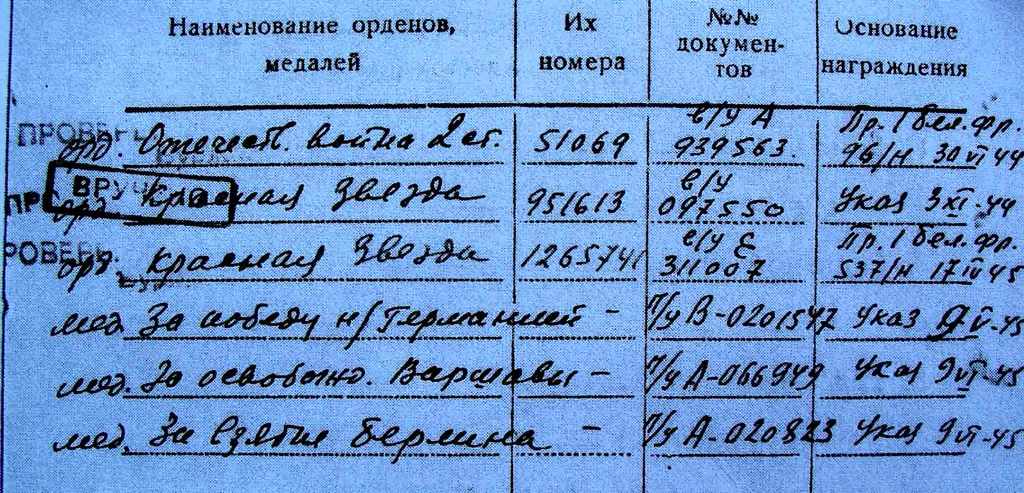 Наименование орденов, медалей
Их номера
№№ документов
Основание награждения
в/у А Пр. 1 бел. фр.
орд. Отечеств. война 2 ст. 51069 939563 96/н 30 VI 44
ВРУЧ
в/у
орд. Красная Звезда 951613 097550 Указ 3 XI-44
с/у Е Пр. 1 бел. фр.
РОВЕРЕ
орд. Красная Звезда 1265741 311007 537/н 17 IV 45
мед. За победу н/Германией - П/у В-0201547 Указ 9 V-45
мед. За освобожд. Варшавы - П/у А-066949 Указ 9 VI-45
мед. За взятие Берлина - П/у А-020823 Указ 9 VI-45